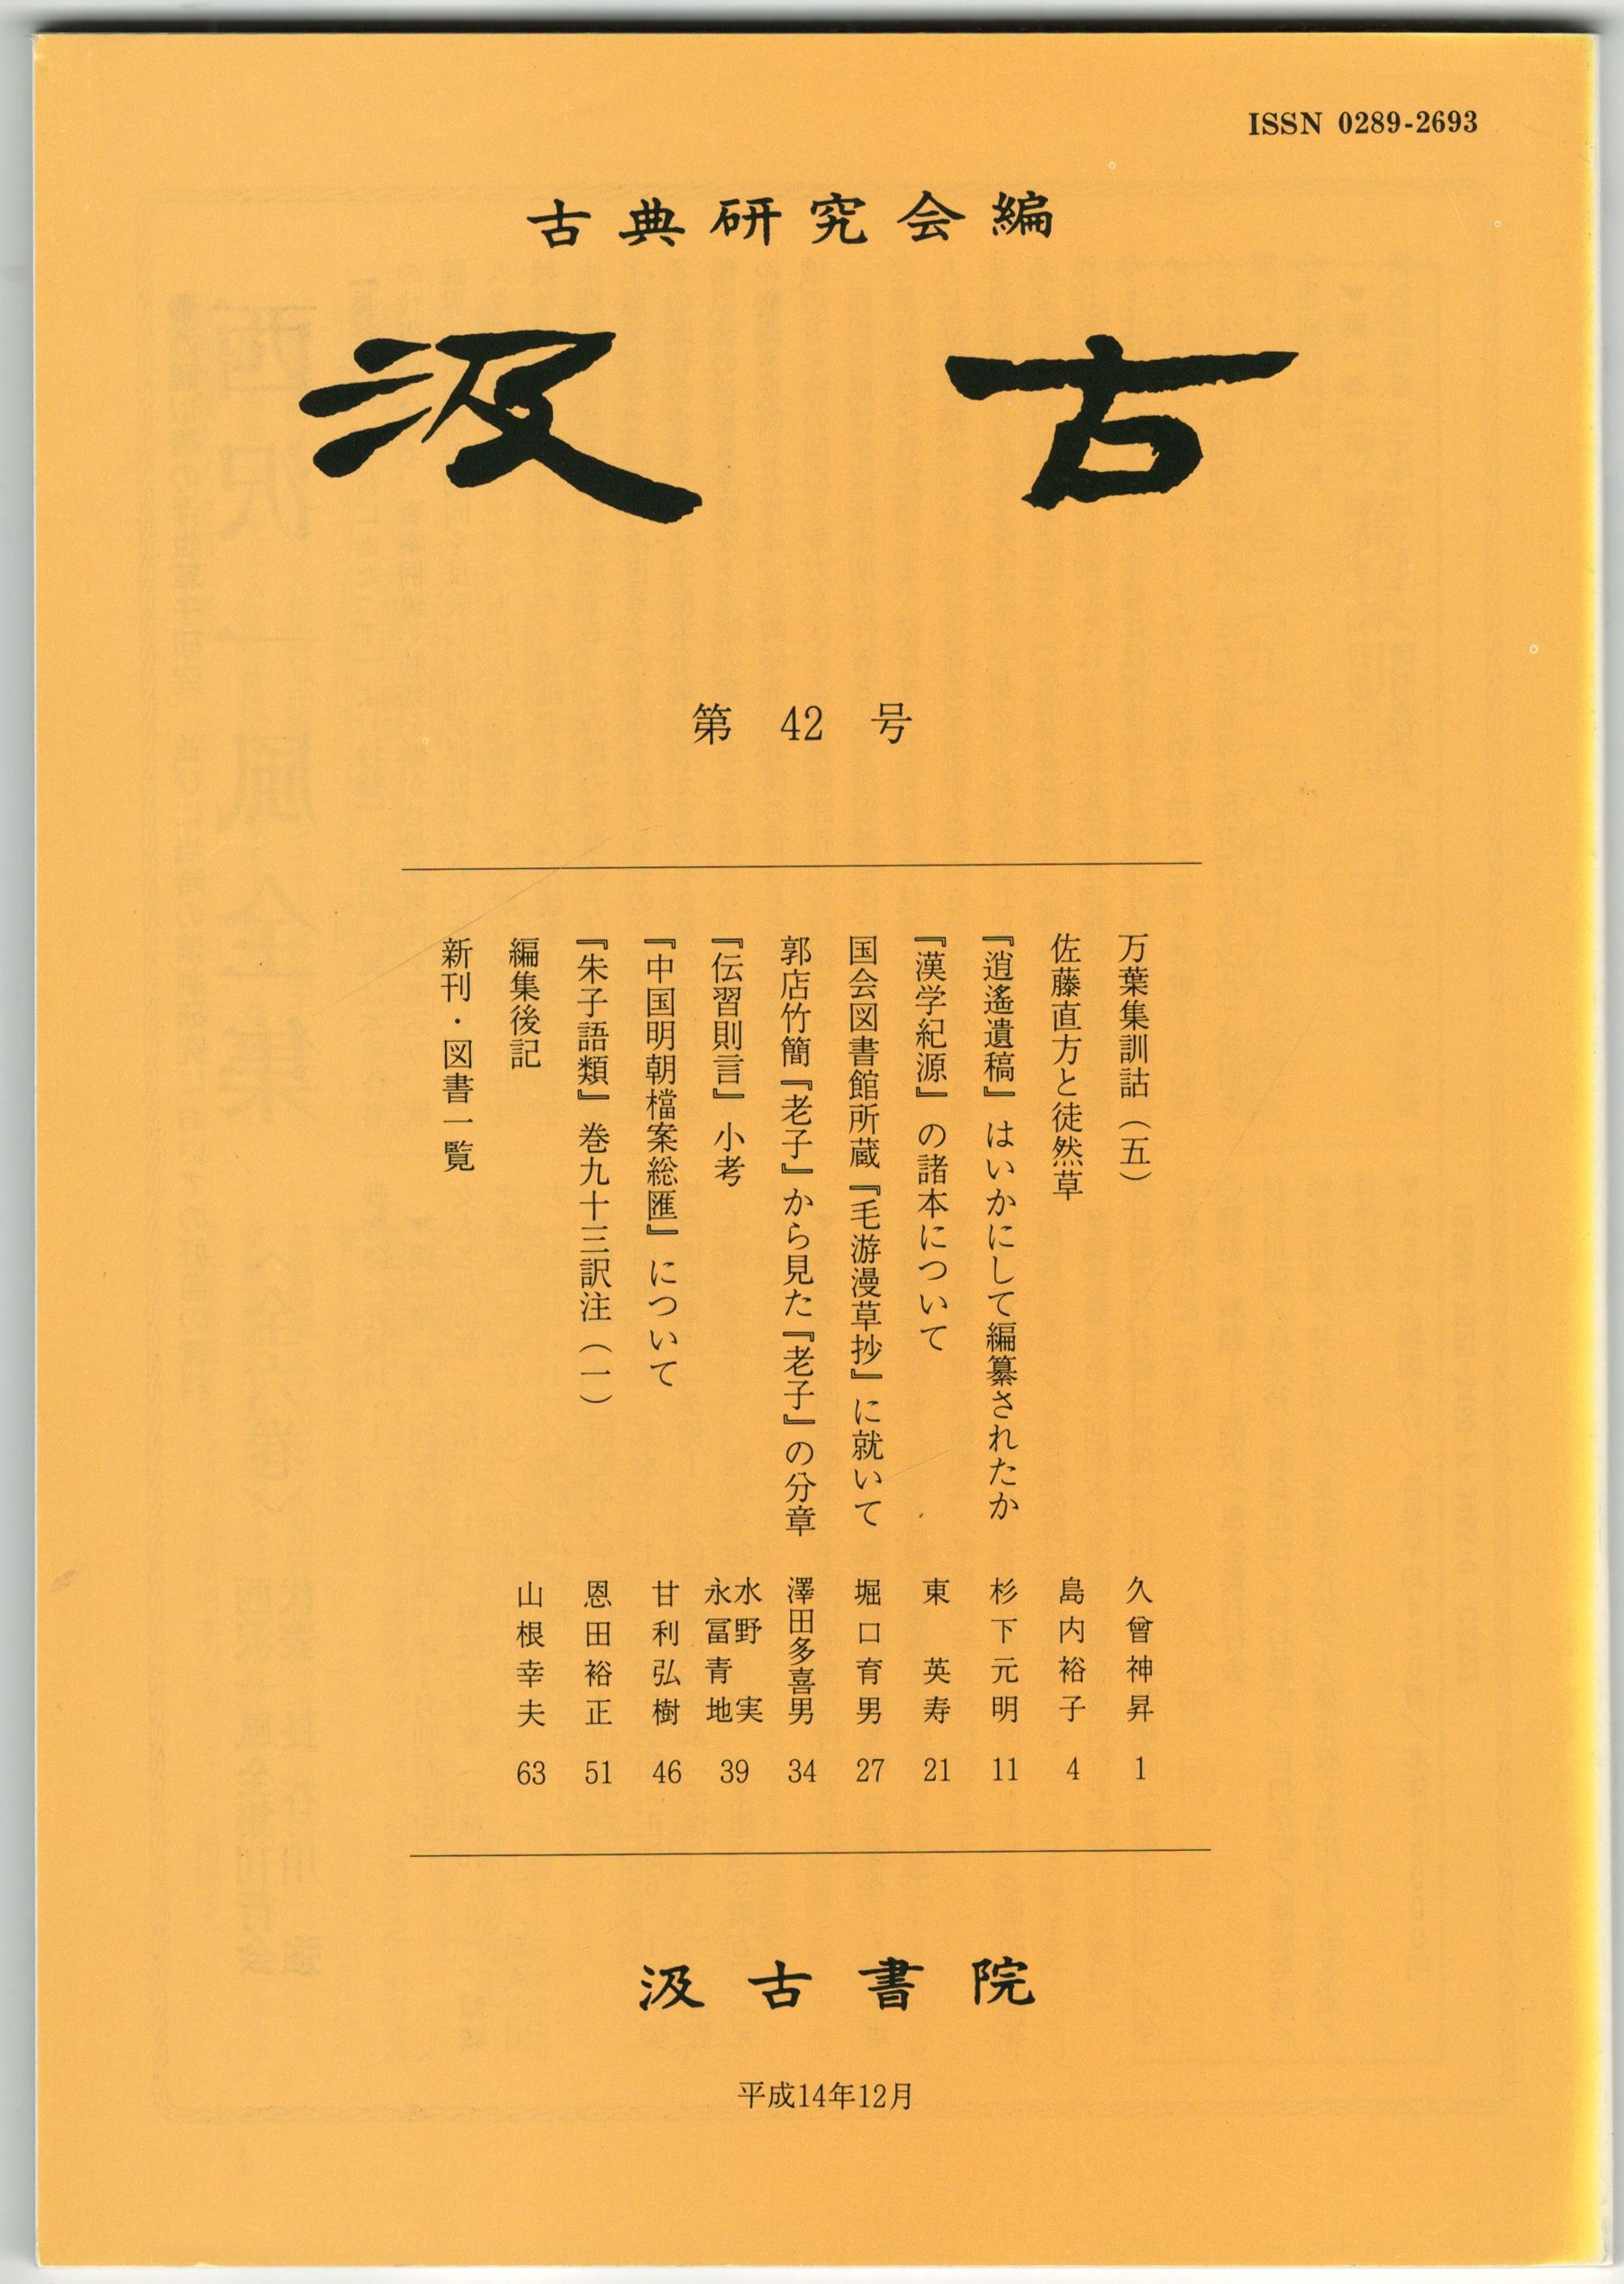 ISSN 0289-2693
古典研究会編
汲古
第 42 号
万葉集訓詁（五） 久曾神昇 1
佐藤直方と徒然草 島内裕子 4
『逍遙遺稿』はいかにして編纂されたか 杉下元明 11
『漢学紀源』の諸本について 東英寿 21
国会図書館所蔵『毛游漫草抄』に就いて 堀口育男 27
郭店竹簡『老子』から見た『老子』の分章 澤田多喜男 34
『伝習則言』小考 水野実 永冨青地 39
『中国明朝檔案総匯』について 甘利弘樹 46
『朱子語類』巻九十三訳注（一） 恩田裕正 51
編集後記 山根幸夫 63
新刊・図書一覧
汲古書院
平成14年12月